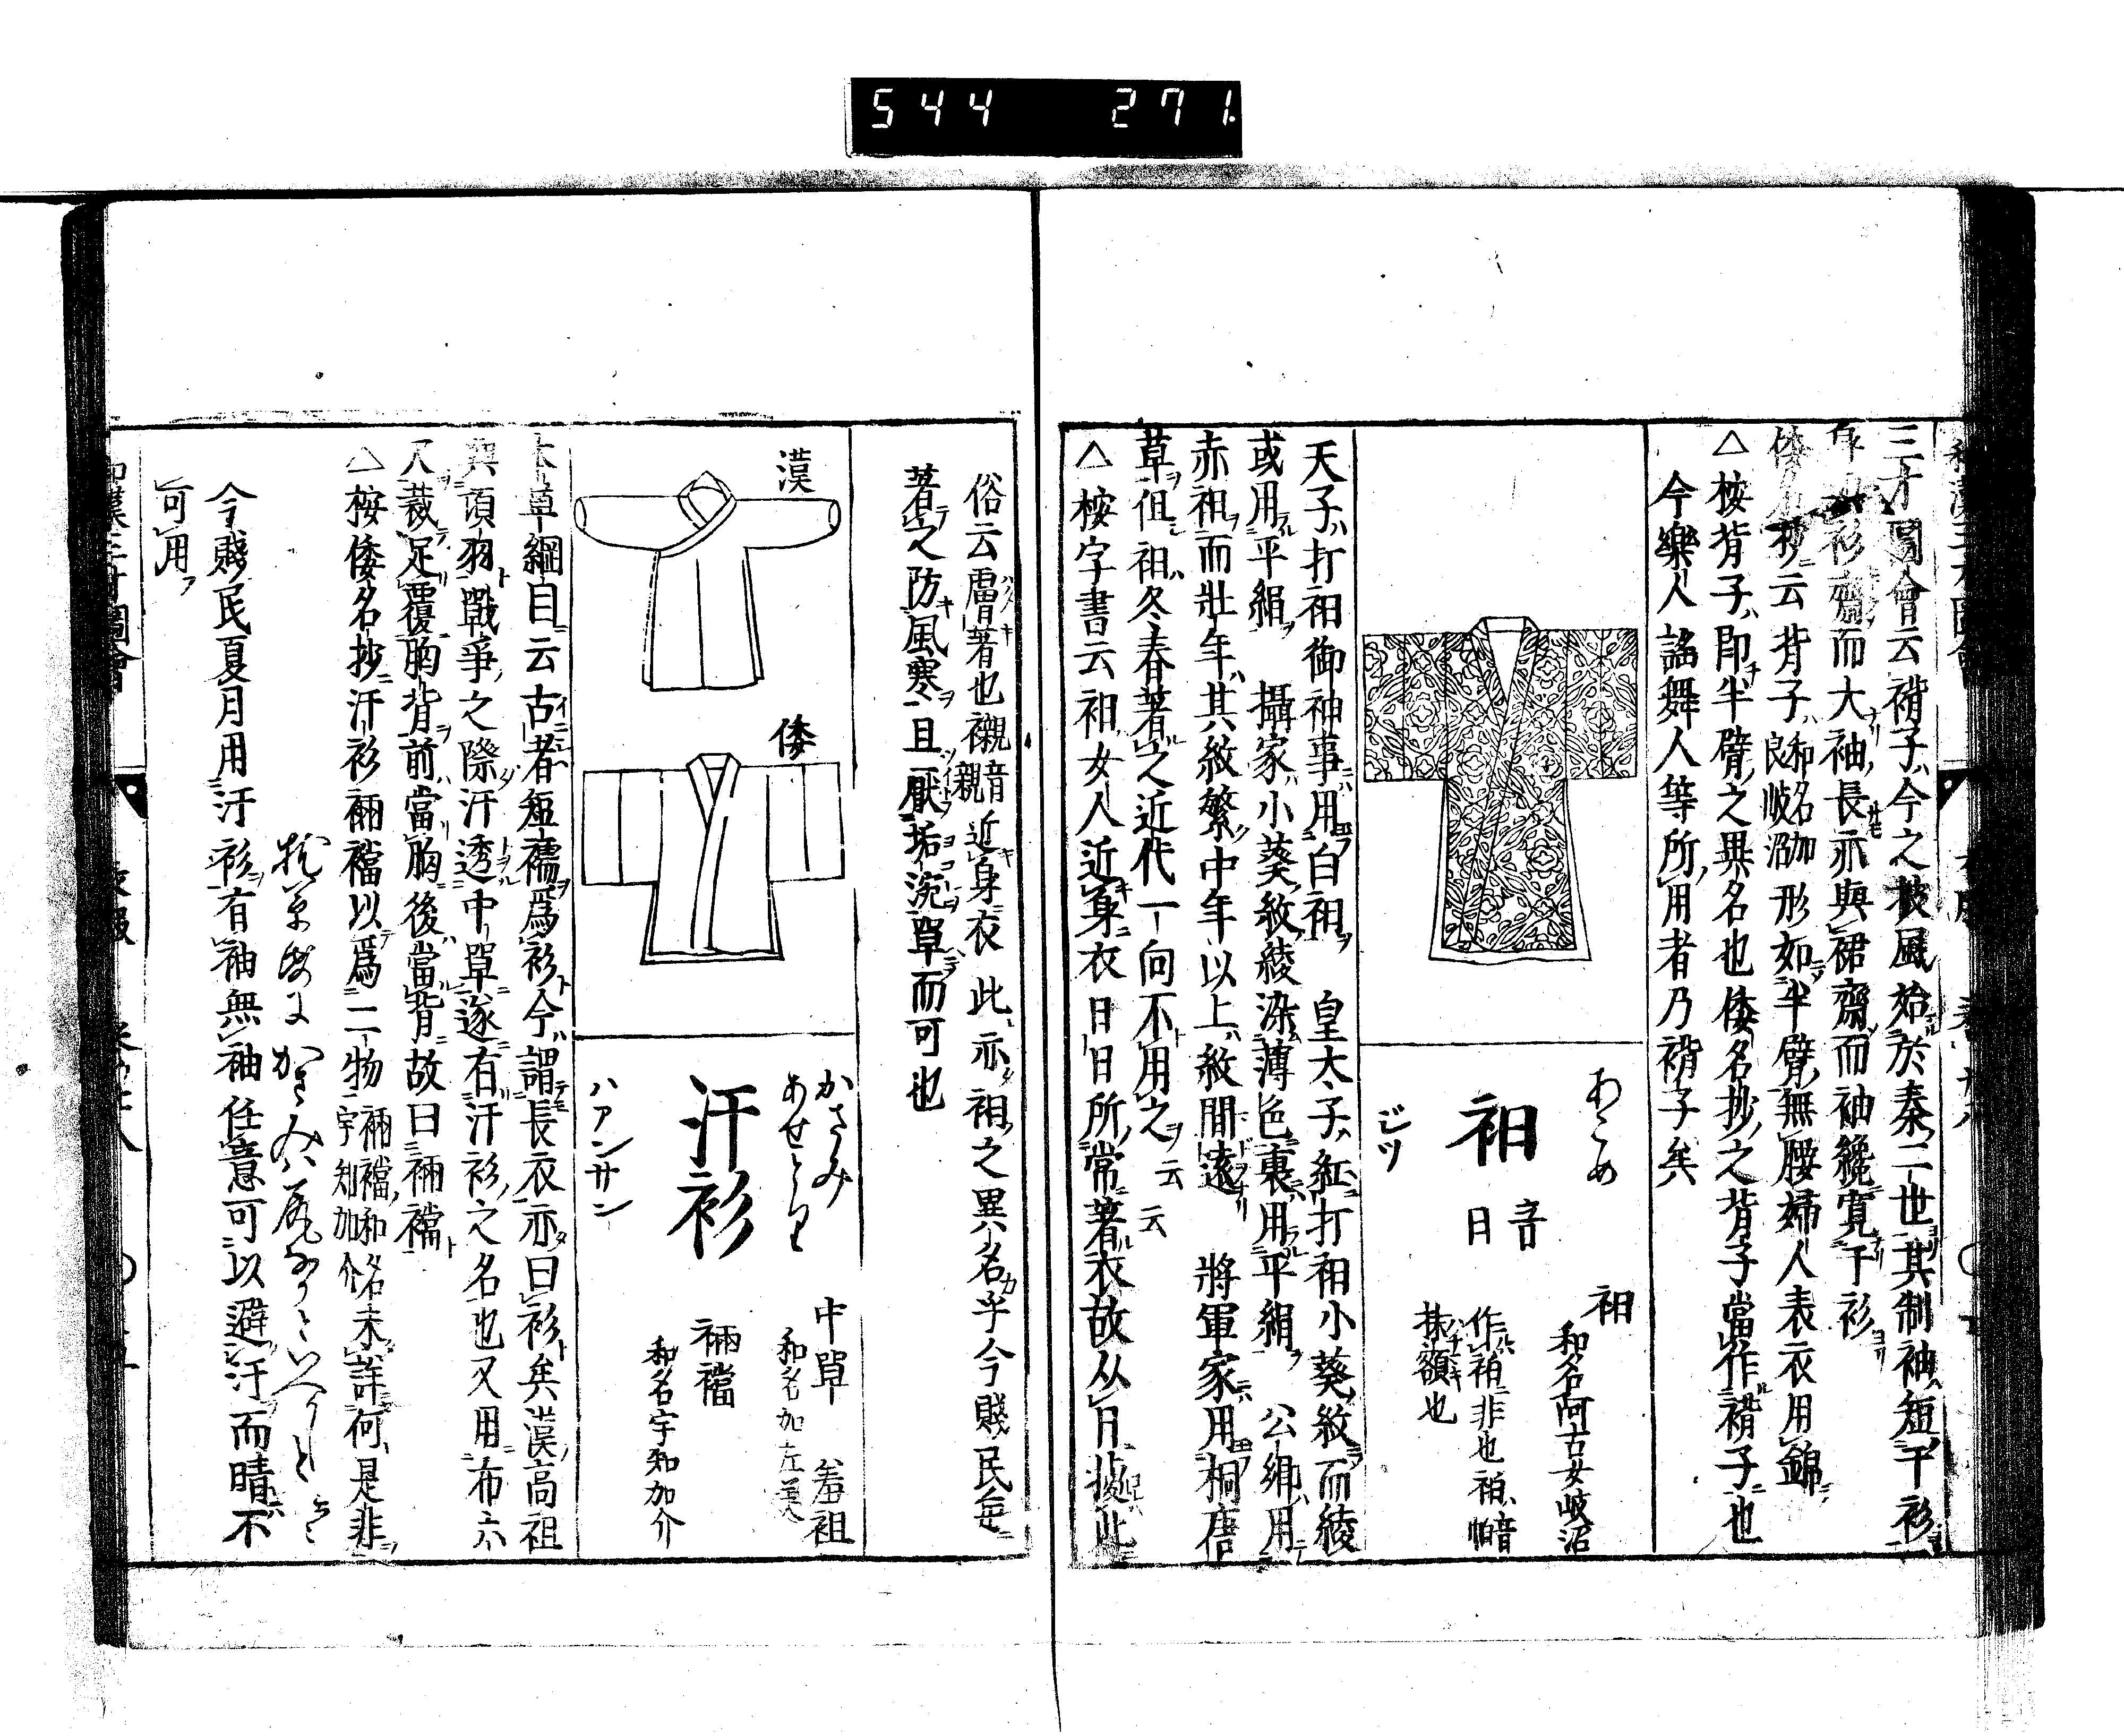 544 271.
三才圖會云褙子今之披風始於秦二世其制袖短于衫
衫齊而大袖長亦與裙齊而袖纔寛于衫
抄云背子和名加良岐沼形如半臂無腰婦人表衣用錦
△按背子即半臂之異名也倭名抄之背子當作褙子也
今樂人謡舞人等所用者乃褙子矣
あこめ
衵 音日
ジツ
衵
和名阿古女岐沼
作袙非也袙音帕
抹額也
天子打衵御神事用白衵 皇太子紅打衵小葵紋而綾
或用平絹 攝家小葵紋綾染薄色裏用平絹 公卿用
赤衵而壯年其紋繁中年以上紋間遠 將軍家用桐唐
草但衵冬春著之近代一向不用之云云
△按字書云衵女人近身衣日日所常著衣故从日茲此
俗云膚著也襯音親近身衣此亦衵之異名乎今賤民毎
著之防風寒且厭垢洗單而可也
漢
倭
かさみ
あせとり
汗衫
ハアンサン
中單 羞袒
和名加左美
裲襠
和名宇知加介
本草綱目云古者短襦爲衫今謂長衣亦曰衫矣漢高祖
與項羽戰爭之際汗透中單遂有汗衫之名也又用布六
尺裁足覆胸背前當胸後當背故曰裲襠
△按倭名抄汗衫裲襠以爲二物裲襠和名宇知加介未詳何是非
枕草帋にかさみハ尾ながといへかし
今賤民夏月用汗衫有袖無袖任意可以避汗而晴不
可用